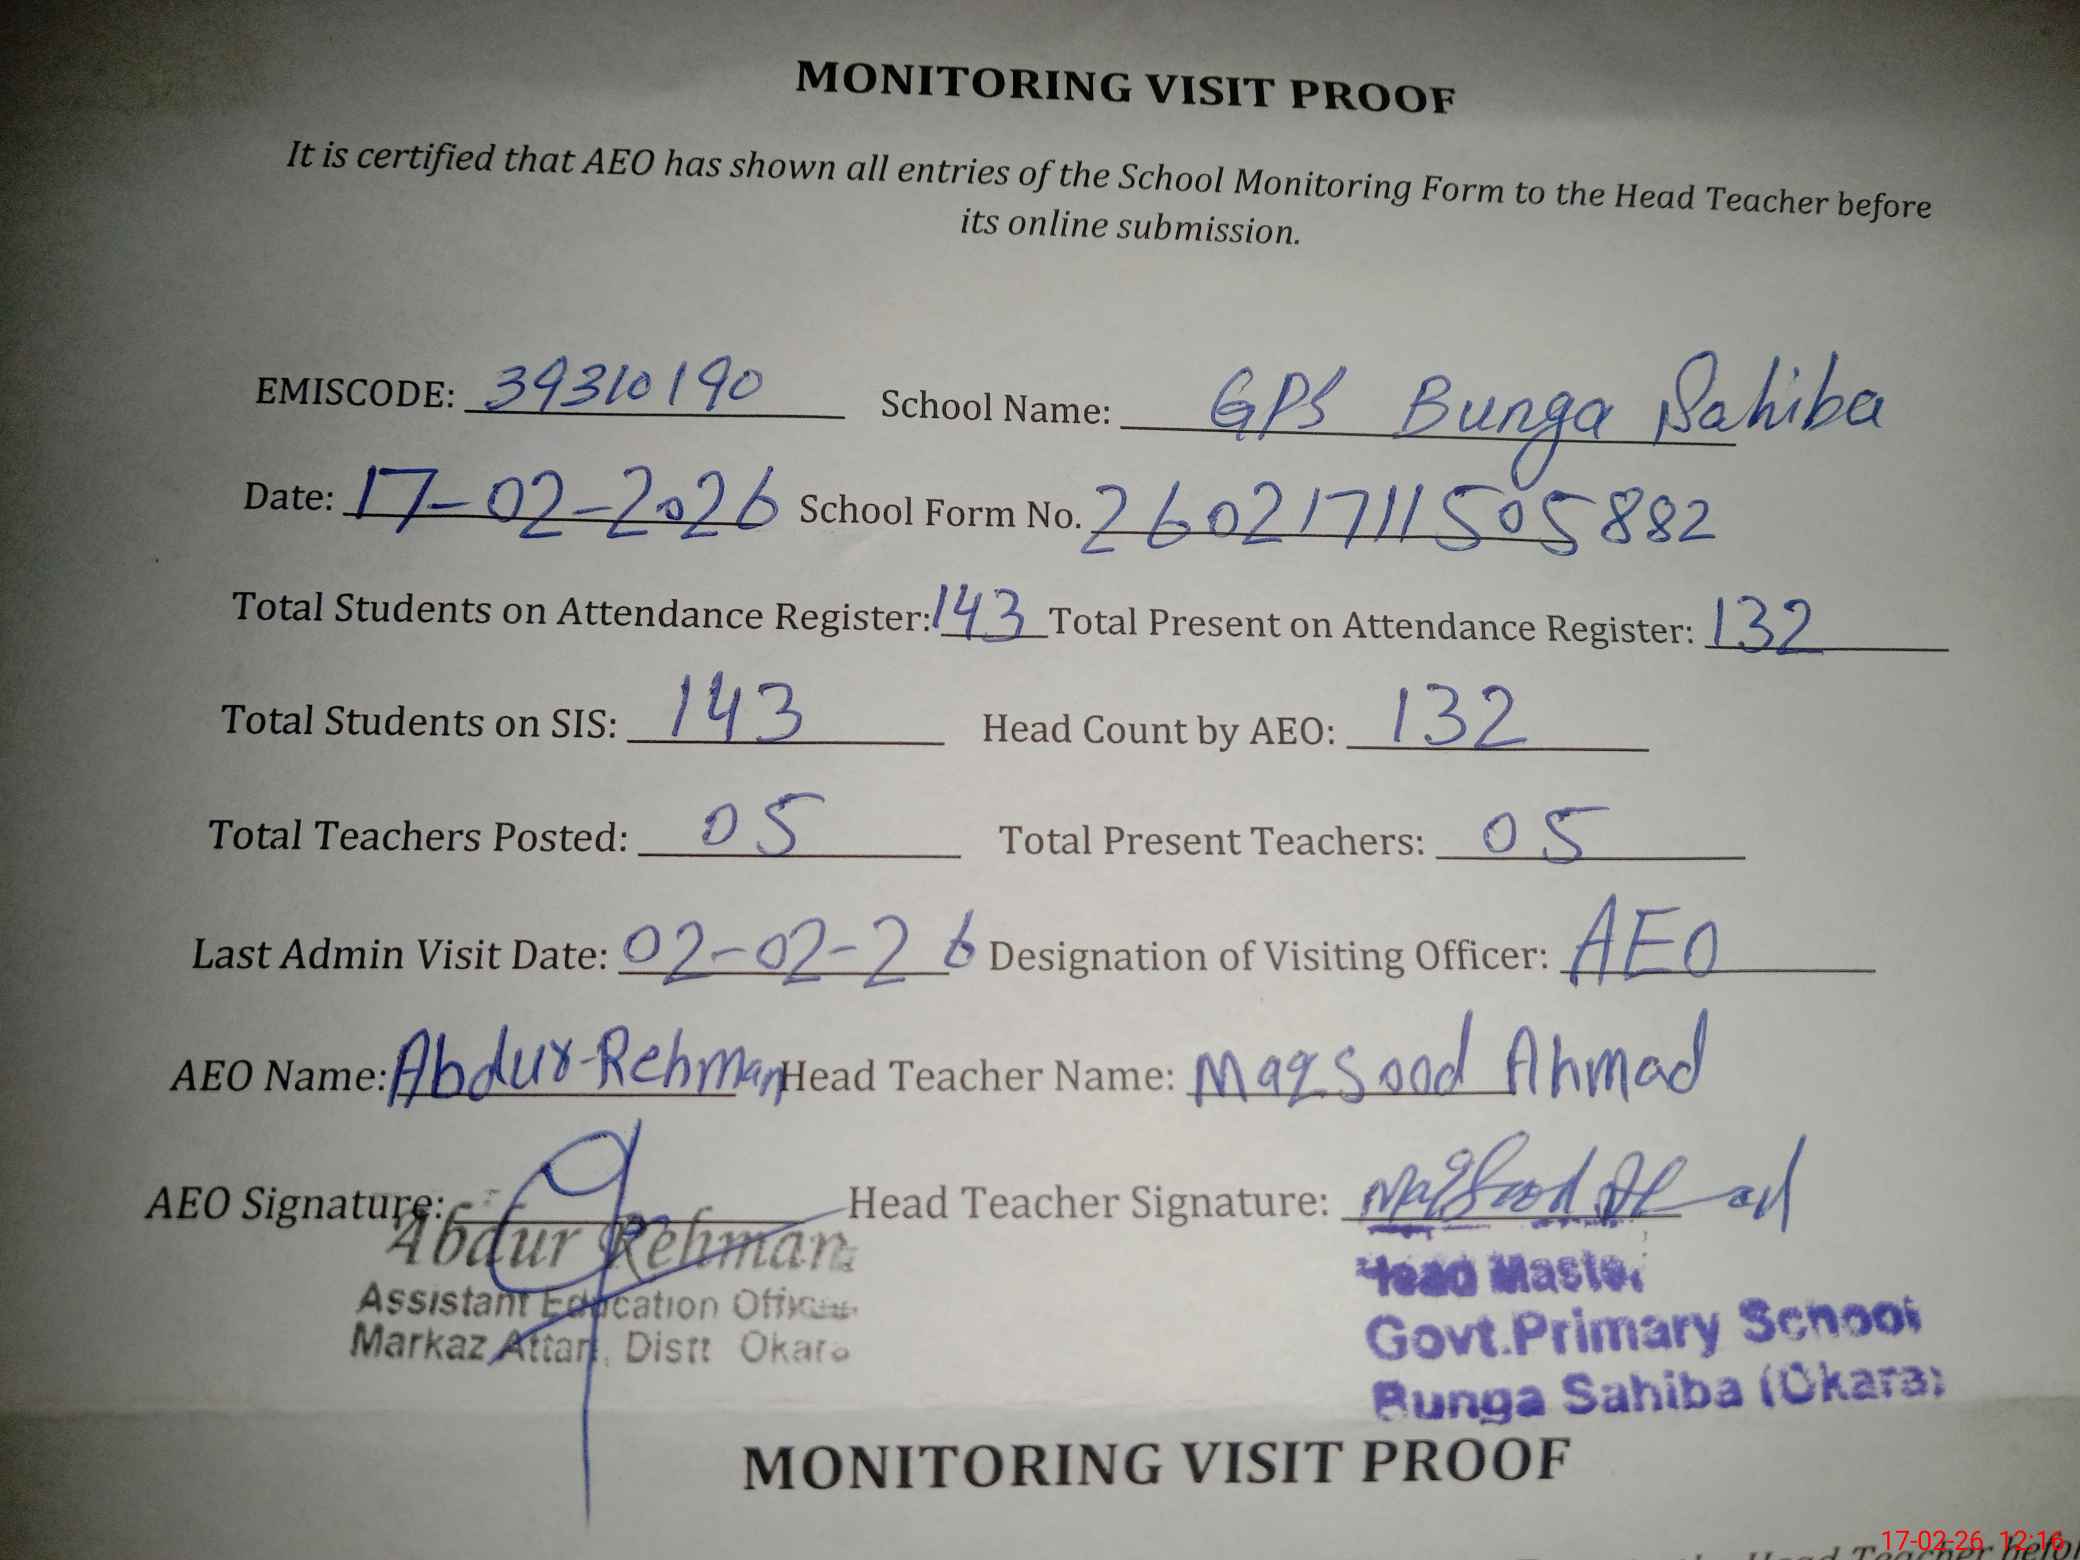 MONITORING VISIT PROOF
It is certified that AEO has shown all entries of the School Monitoring Form to the Head Teacher before
its online submission.
EMISCODE: 39310190 School Name: GPS Bunga Sahiba
Date: 17-02-2026 School Form No. 26021711505882
Total Students on Attendance Register: 143 Total Present on Attendance Register: 132
Total Students on SIS: 143 Head Count by AEO: 132
Total Teachers Posted: 05 Total Present Teachers: 05
Last Admin Visit Date: 02-02-26 Designation of Visiting Officer: AEO
AEO Name: Abdur-Rehman Head Teacher Name: Maqsood Ahmad
AEO Signature: Head Teacher Signature: Maqsood Ahmad
Abdur Rehman
Assistant Education Officer
Markaz Attari, Distt Okara
Head Master
Govt.Primary School
Bunga Sahiba (Okara)
MONITORING VISIT PROOF
17-02-26 12:16
Head Teacher before